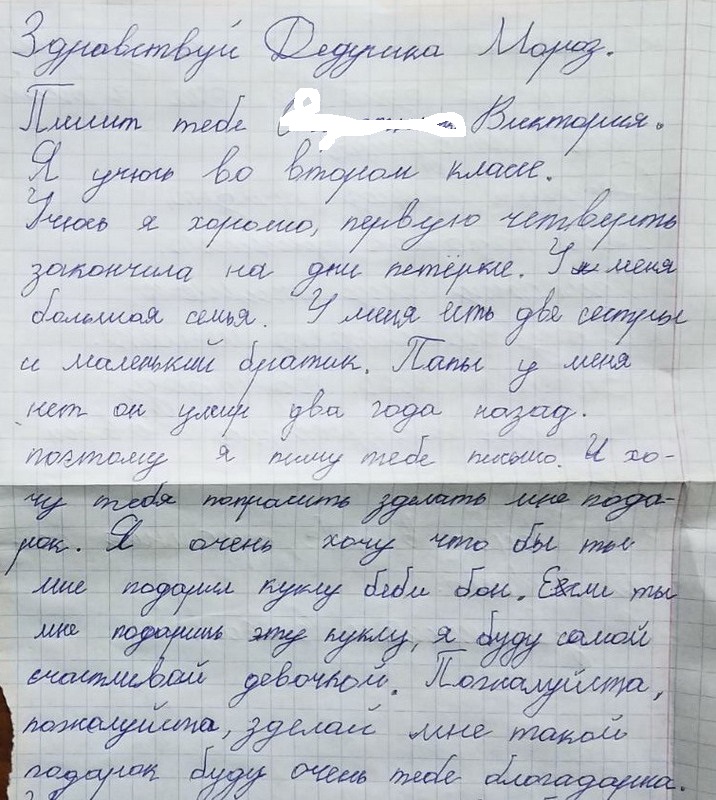 Здравствуй Дедушка Мороз.
Пишит тебе Виктория.
Я учюсь во втором классе.
Учюсь я хорошо, первую четверть
закончила на дни петёрки. У меня
большая семья. У меня есть две сестры
и маленький братик. Папы у меня
нет он умир два года назад.
поэтому я пишу тебе письмо. И хо-
чу тебя попрасить зделать мне пода-
рок. Я очень хочу что бы ты
мне подарил куклу беби бон. Если ты
мне подаришь эту куклу, я буду самой
счастливай девочкой. Пожалуйста,
пожалуйста, зделай мне такой
подарок буду очень тебе благадарна.